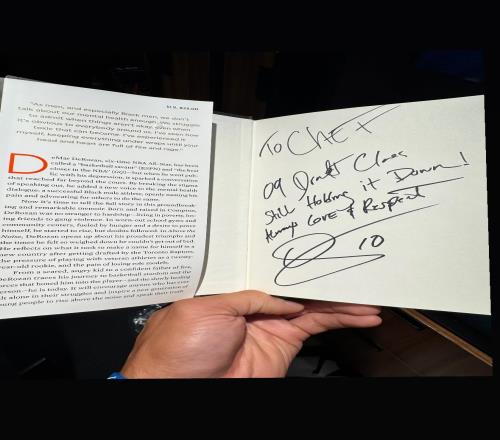 U.S. $29.00
"As men, and especially Black men, we don't
talk about our mental health enough, we struggle
to admit when things aren't okay, even when
it's obvious to everybody around us. I've seen how
toxic that can become. I've experienced it
myself, keeping everything under wraps until your
head and heart are full of fire and rage."
DeMar DeRozan, six-time NBA All-Star, has been
called a "basketball savant" (ESPN) and "the best
closer in the NBA" (GQ)—but when he went pub-
lic with his depression, it sparked a conversation
that reached far beyond the court. By breaking the stigma
of speaking out, he added a new voice to the mental health
discussion, a successful Black male athlete, openly naming his
pain and advocating for others to do the same.
Now it's time to tell the full story in this groundbreak-
ing and remarkable memoir. Born and raised in Compton,
DeRozan was no stranger to hardship—living in poverty, los-
ing friends to gang violence. In worn-out school gyms and
community centers, fueled by hunger and a desire to power
himself, he started to rise, but doubts followed. In Above the
Noise, DeRozan opens up about his proudest triumphs and
the times he felt so weighed down he couldn't get out of bed.
He reflects on what it took to make a name for himself in a
new country after getting drafted by the Toronto Raptors,
the pressure of playing with veteran athletes as a twenty-
year-old rookie, and the pain of losing role models.
From a scared, angry kid to a confident father of five,
DeRozan traces his journey to basketball stardom and the
forces that honed him into the player—and the slowly healing
person—he is today. It will encourage anyone who has ever
felt alone in their struggles and inspire a new generation of
young people to rise above the noise and speak their truth.
To CHEF
09 Draft Class
Still Holding it Down!
Always Love & Respect
10